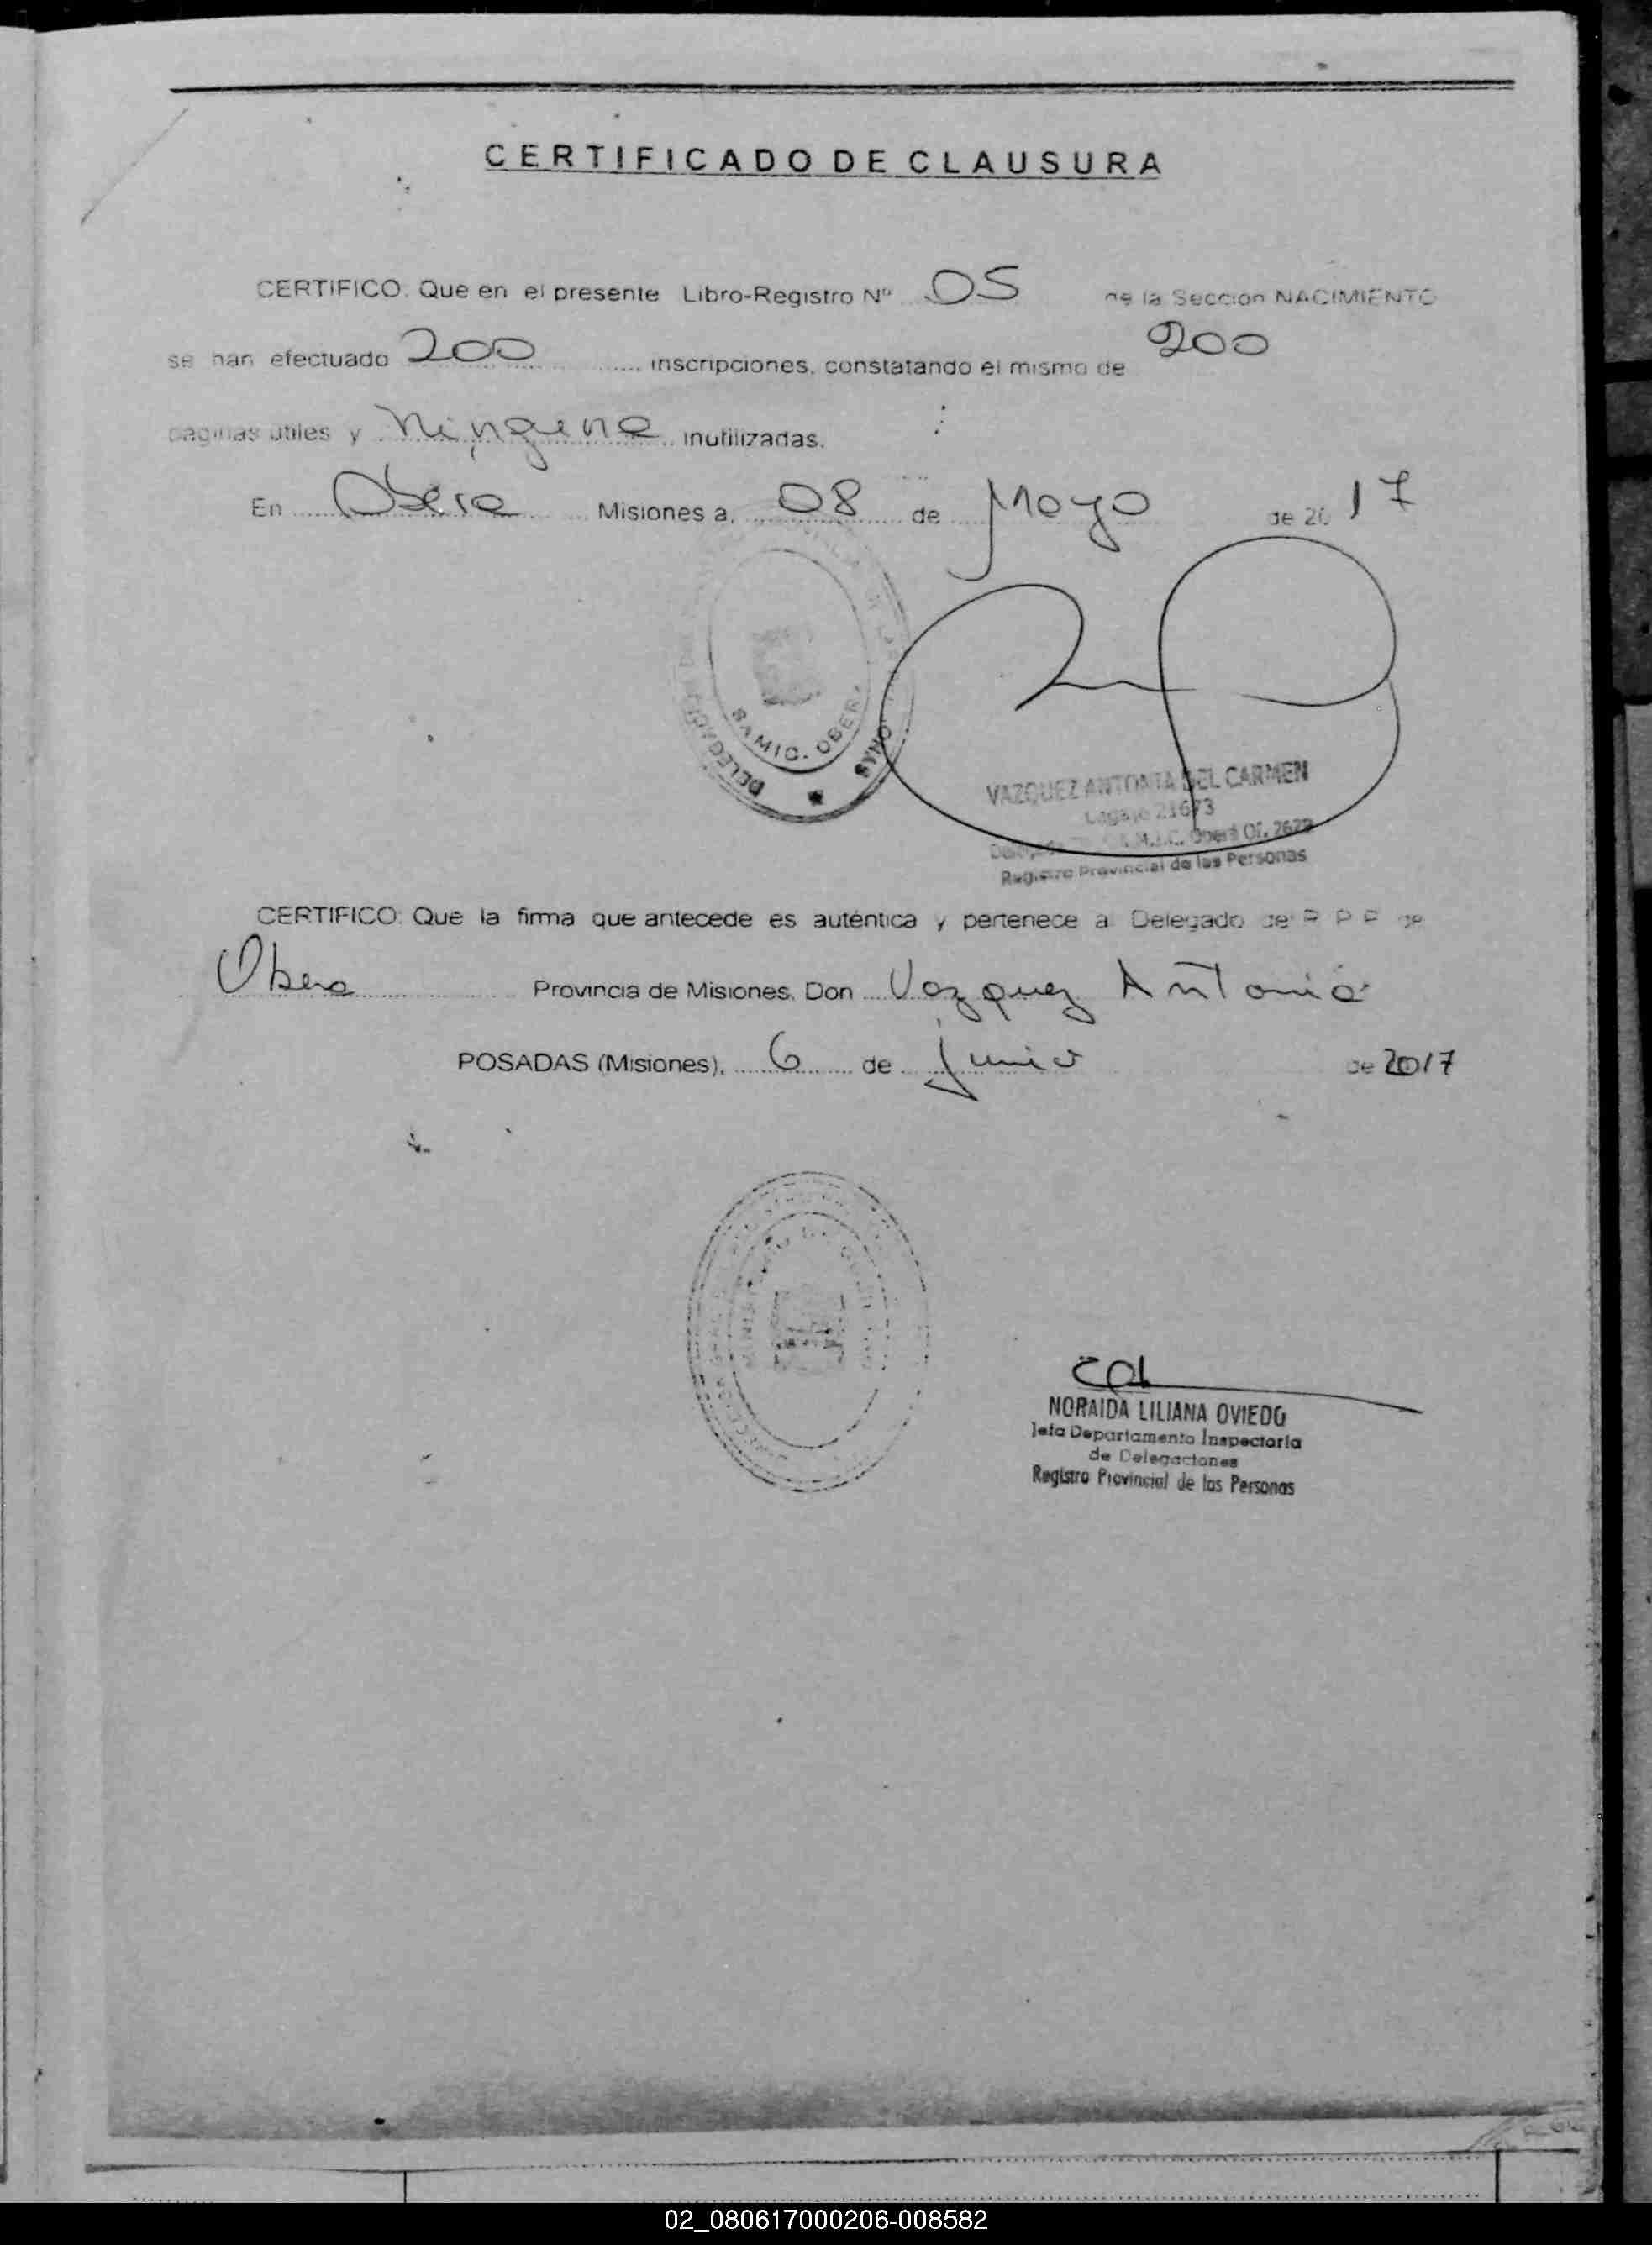 CERTIFICADO DE CLAUSURA
CERTIFICO: Que en el presente Libro-Registro Nº 05 de la Sección NACIMIENTO
se han efectuado 200 inscripciones, constatando el mismo de 200
páginas útiles y ninguna inutilizadas.
En Oberá Misiones a, 08 de Mayo de 20 17
SAMIC. OBERA
DELEGACION
VAZQUEZ ANTONIA DEL CARMEN
Legajo 21673
S.A.M.I.C. Oberá Of. 2629
Registro Provincial de las Personas
CERTIFICO: Que la firma que antecede es auténtica y pertenece a Delegado de R P P de
Obera Provincia de Misiones, Don Vazquez Antonia
POSADAS (Misiones), 6 de junio de 2017
NORAIDA LILIANA OVIEDO
Jefa Departamento Inspectoría
de Delegaciones
Registro Provincial de las Personas
02_080617000206-008582